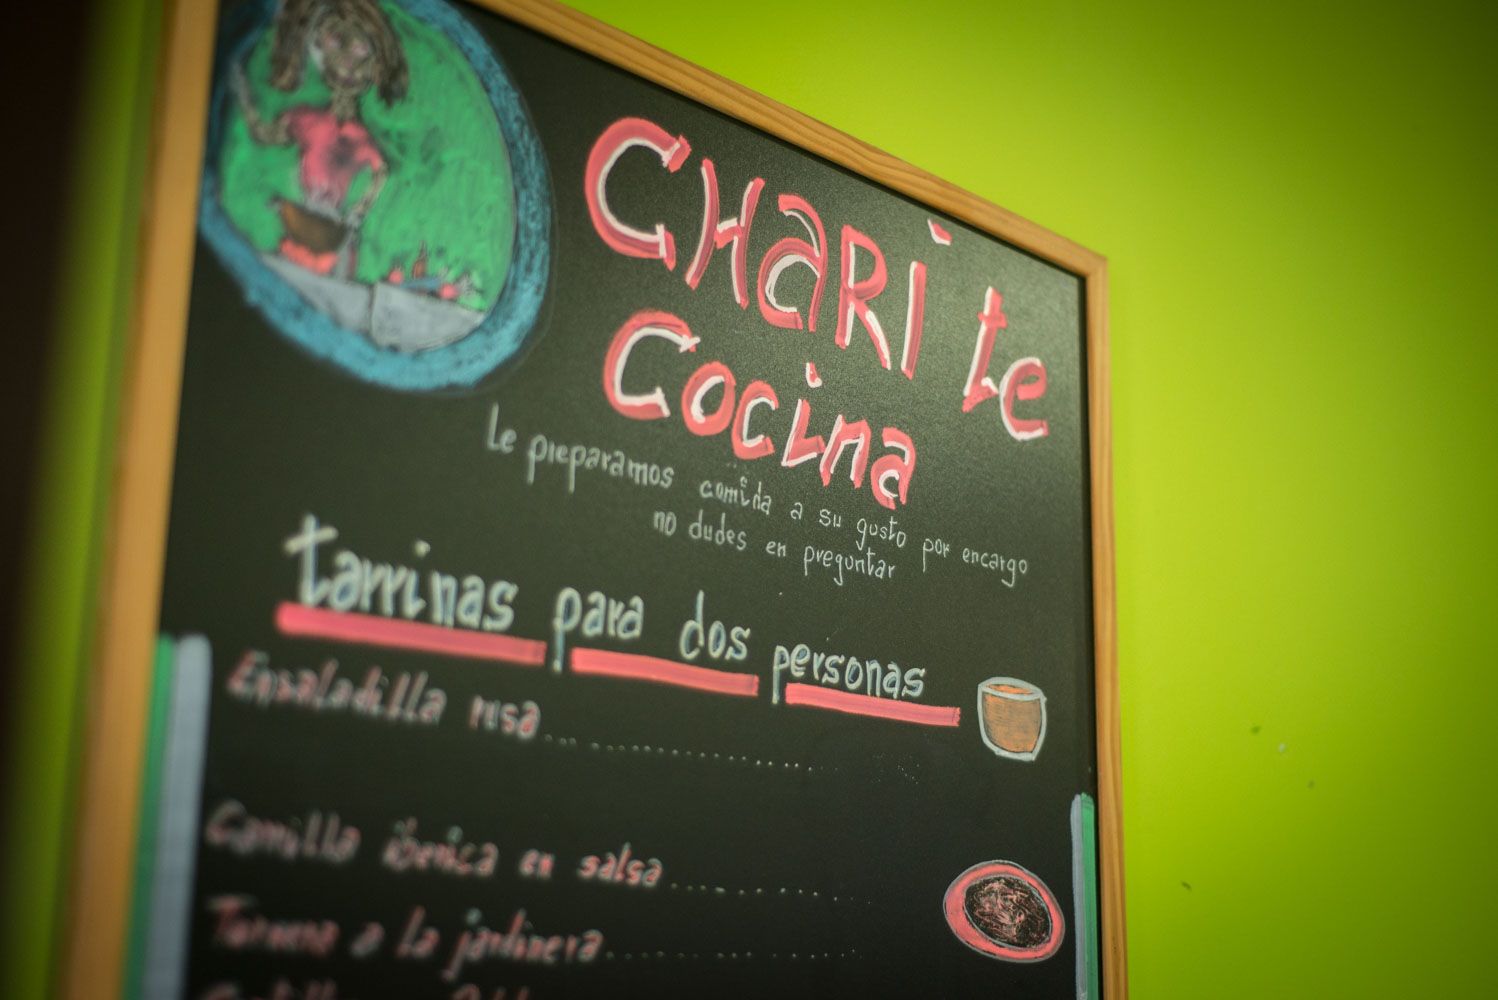 CHARI te
Cocina
Le preparamos comida a su gusto por encargo
no dudes en preguntar
tarrinas para dos personas
Ensaladilla rusa ..................
Carrillo iberica en salsa ............
Ternera a la jardinera ..................